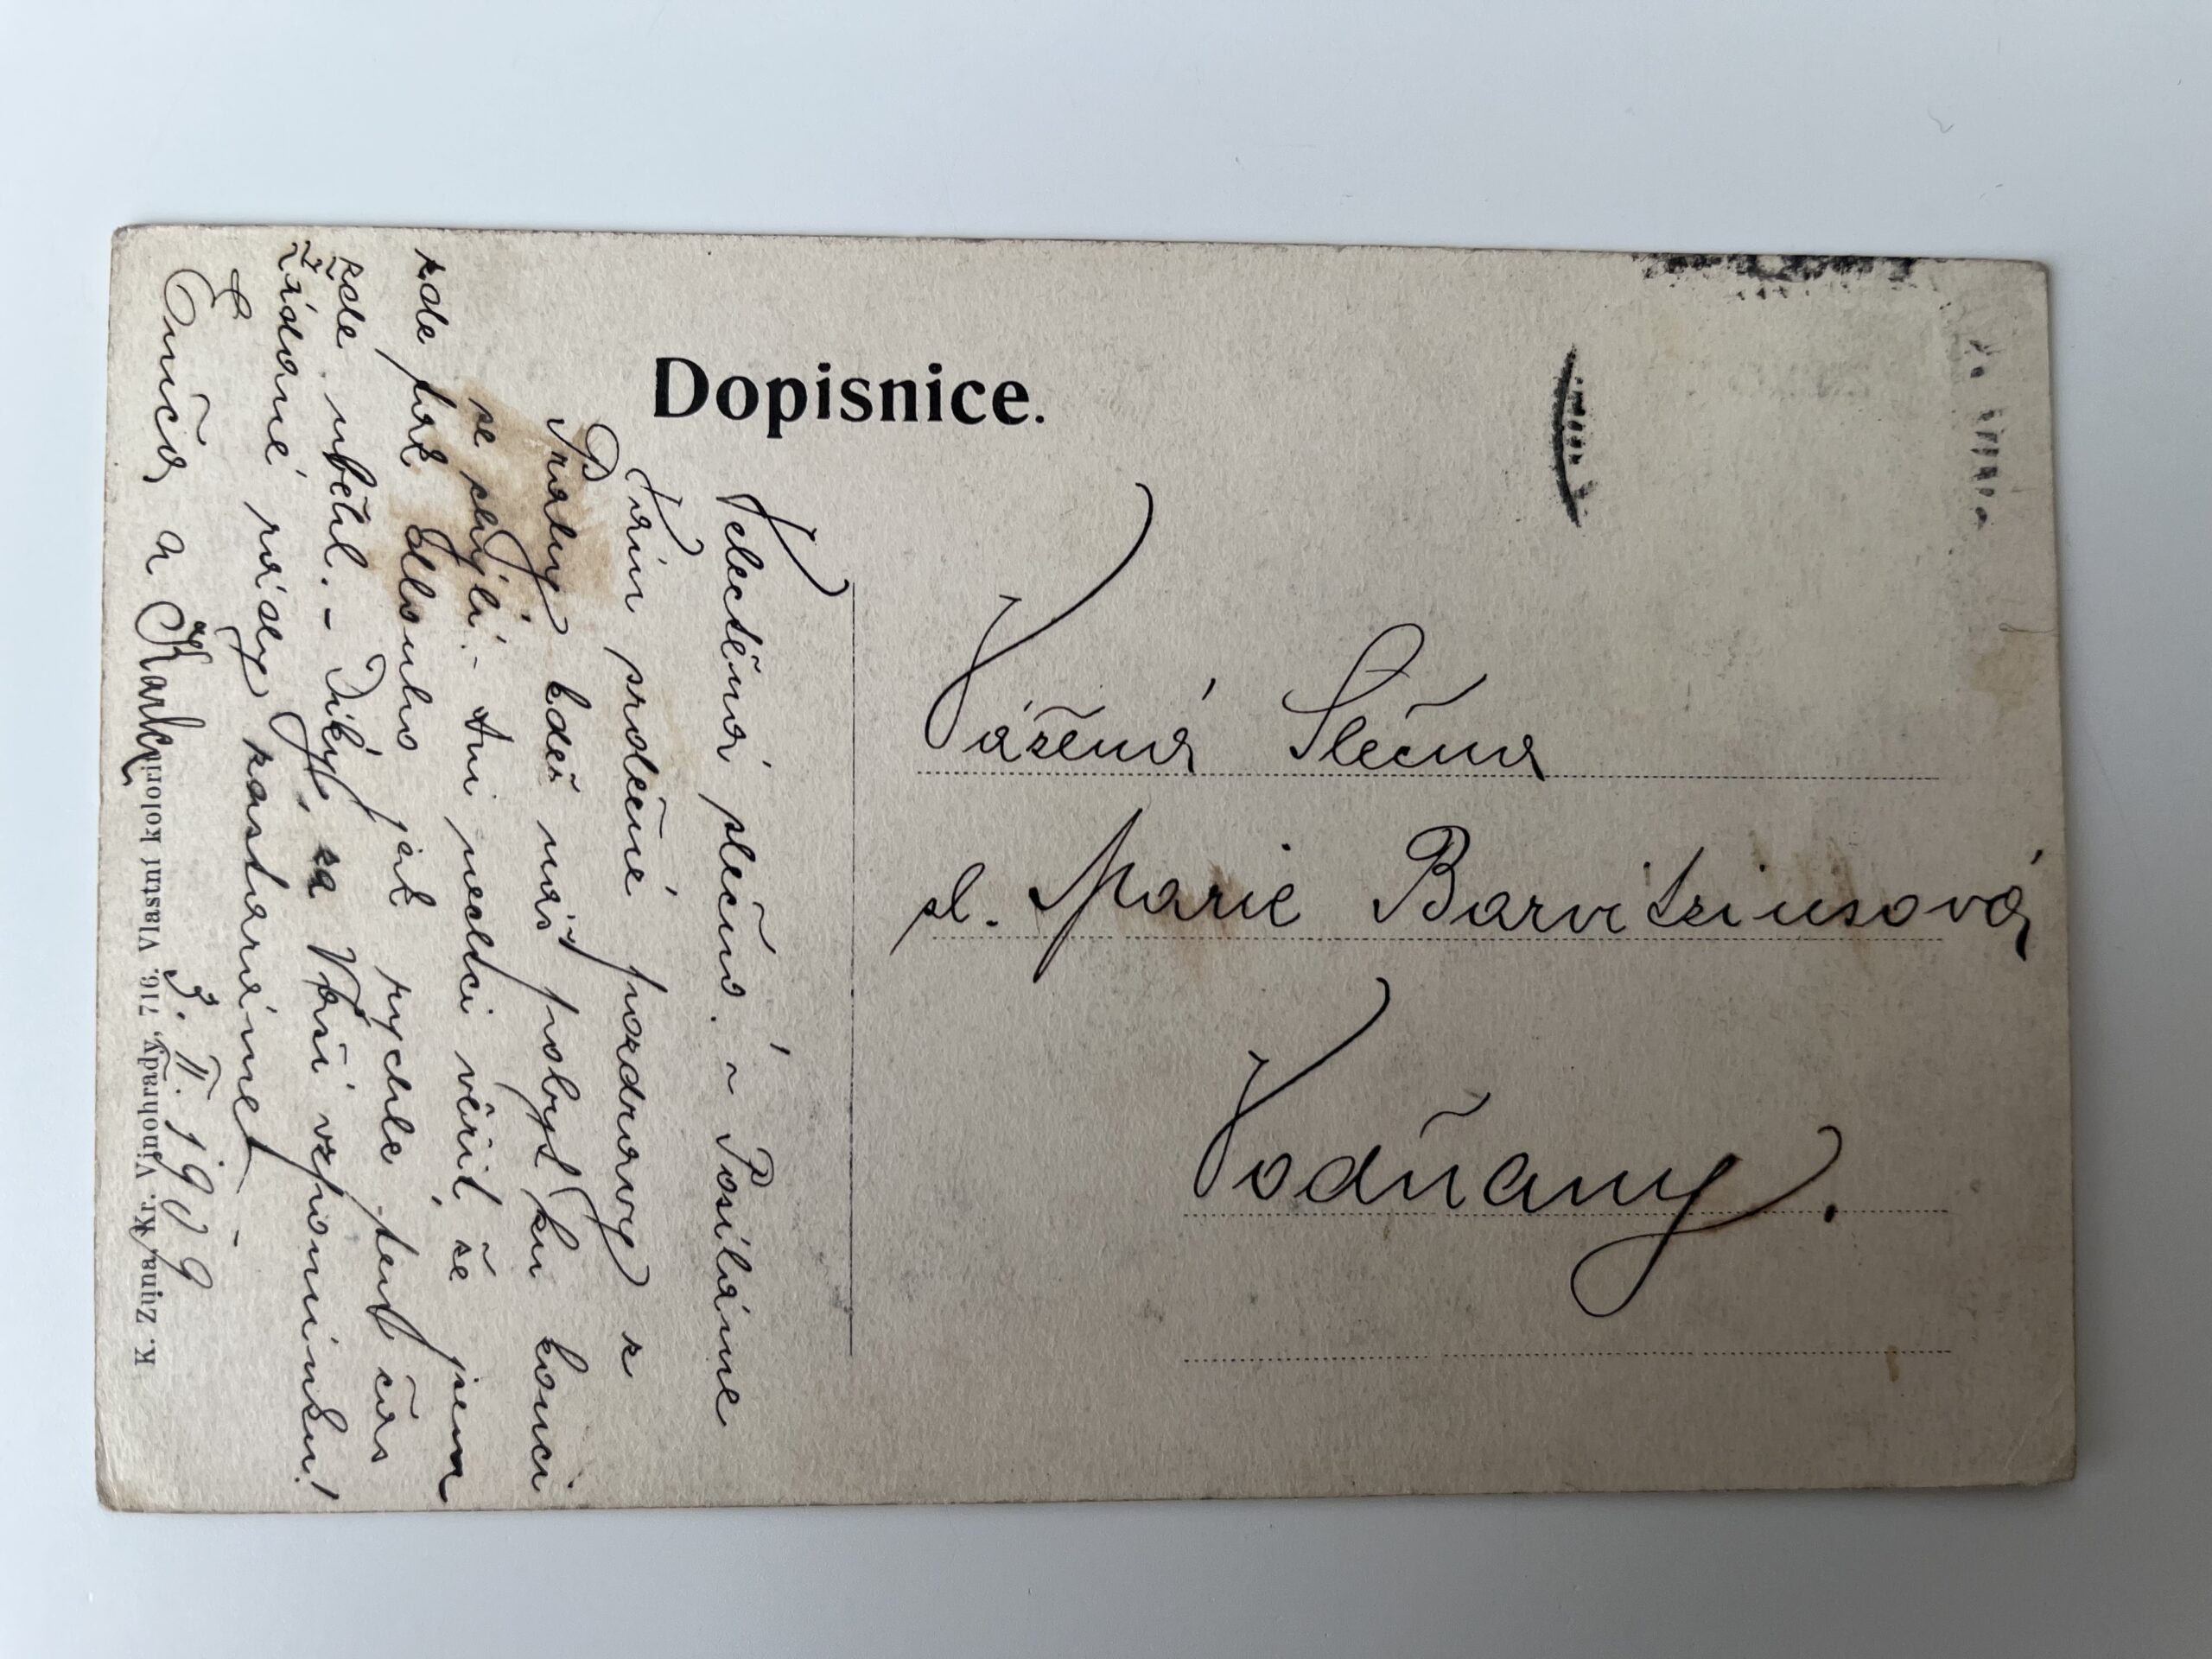 Dopisnice.
Velectěná slečno. - Posíláme
Vám srdečné pozdravy z
Prahy kdež náš pobyt ku konci
se chýlí. - Ani nechci věřit, že jsem
zde tak dlouho jak rychle ten čas
zde uběhl. - Díky, za Vaši vzpomínku!
Žádané rády zastaráme!
Enča a Karla
3. II. 1909
K. Zuna, Kr. Vinohrady, 716. Vlastní kolorit
Vážená Slečna
sl. Marie Barvitziusová
Vodňany.